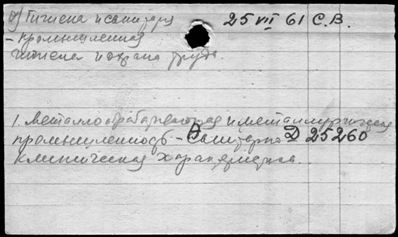 а) Гигиена и санитария 25 VII 61 С.В.
- промышленная
гигиена и охрана труда
1. Металлообрабатывающая и металлургическая
промышленность - Санитарно Д 25260
клиническая характеристика.